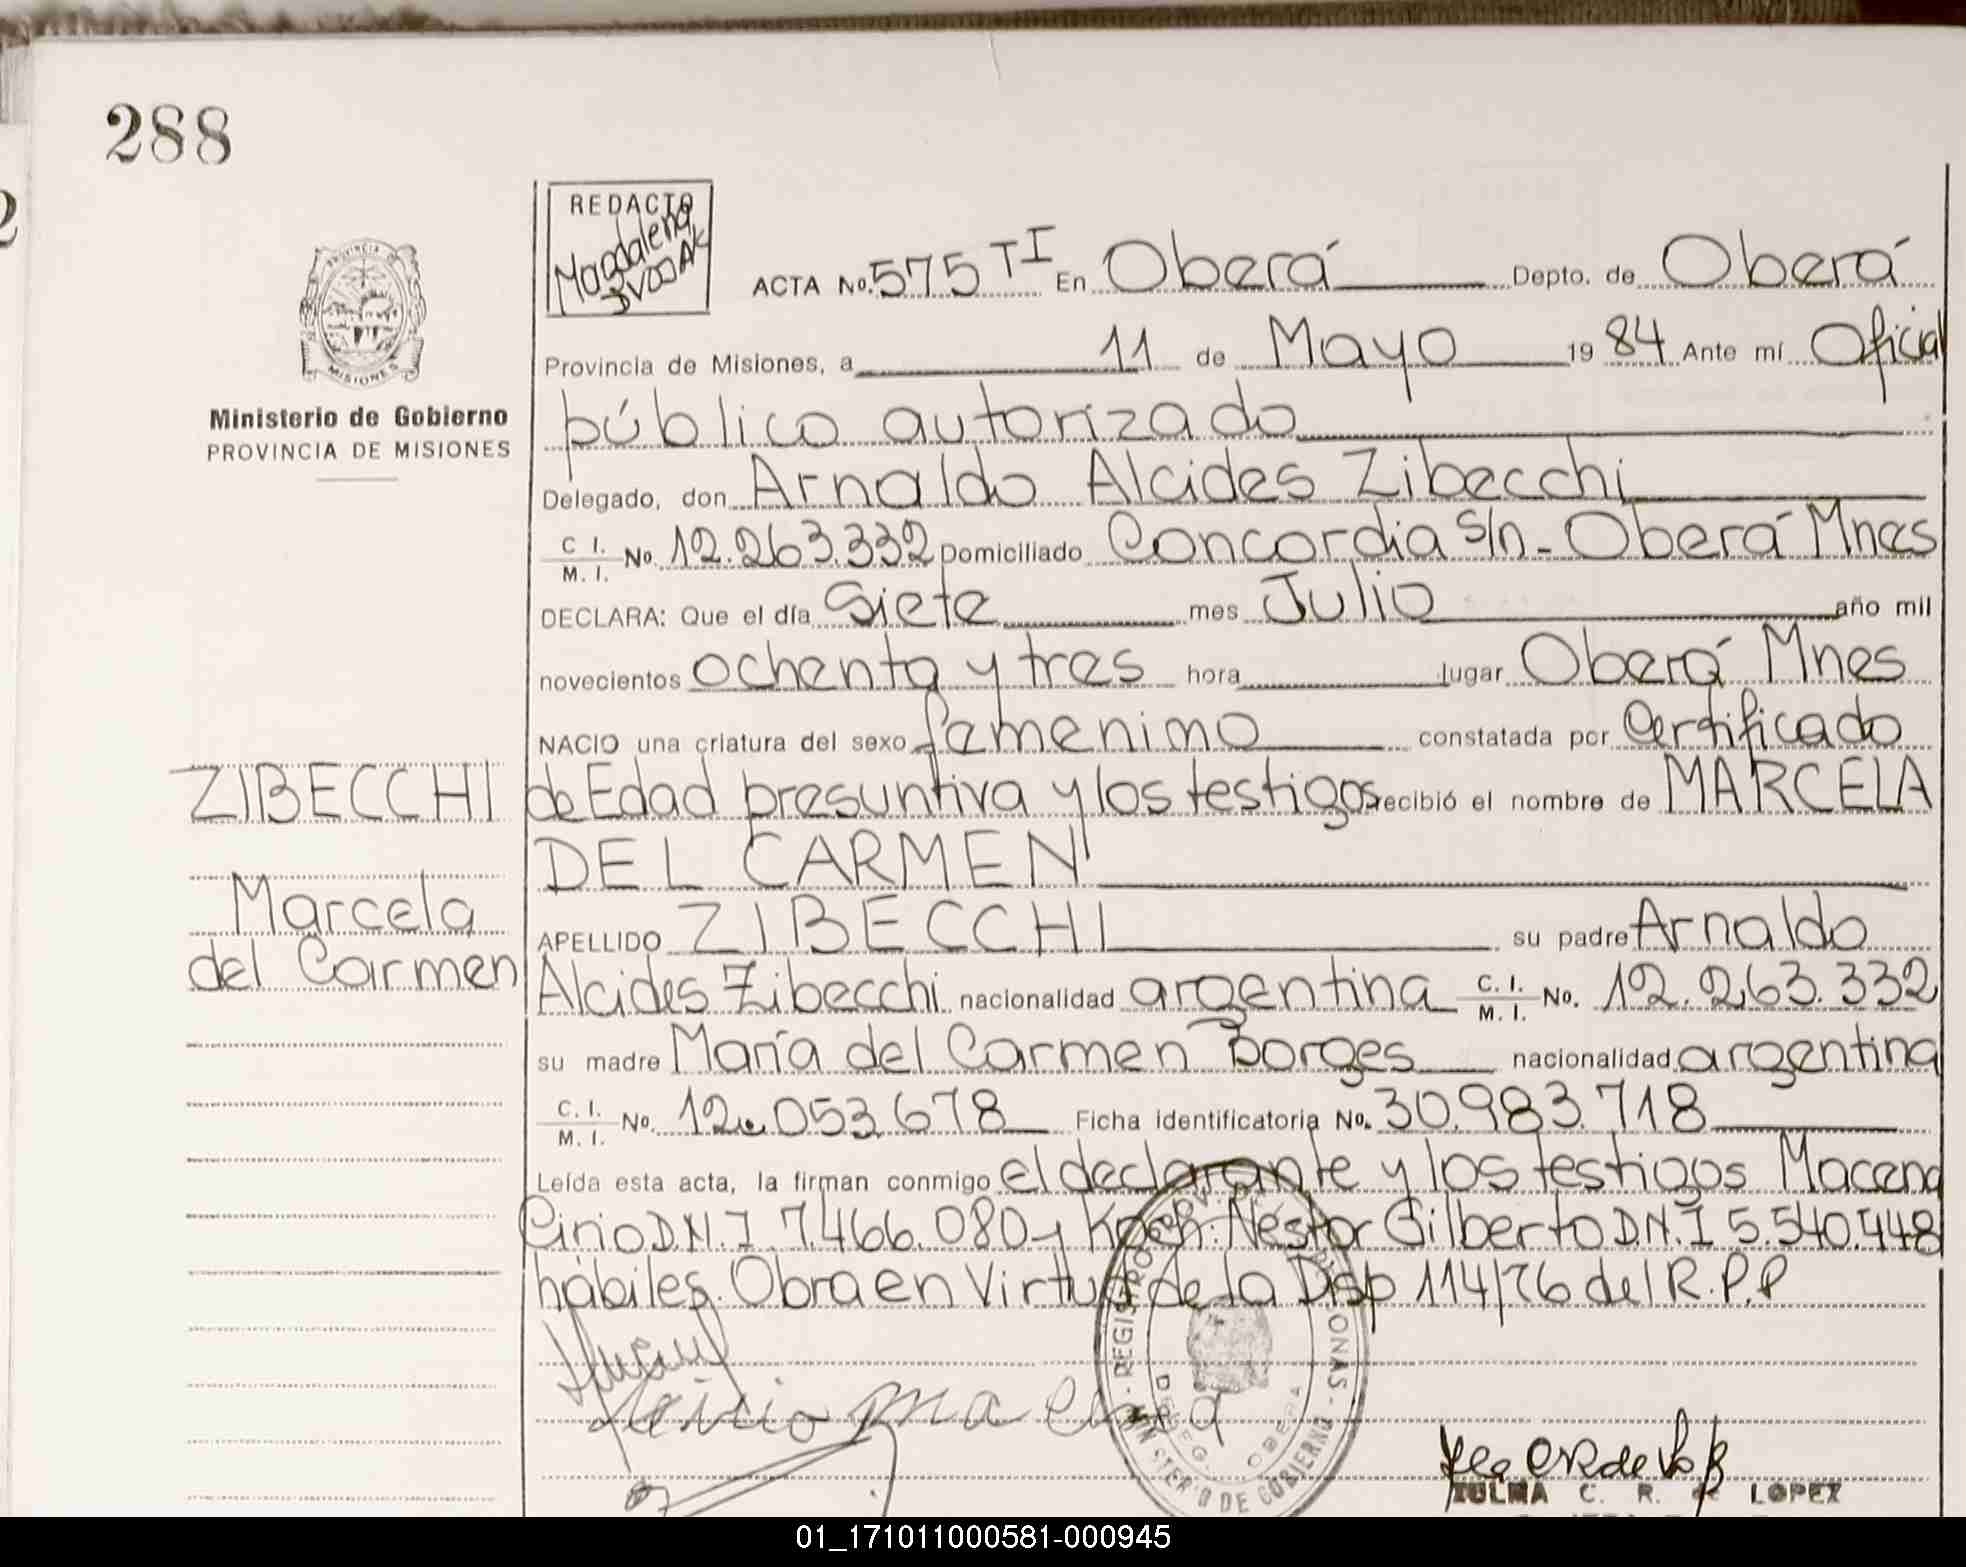 288
2
REDACTO
Magdalena
ACTA No. 575 TI En Oberá Depto. de Oberá
Provincia de Misiones, a 11 de Mayo 1984 Ante mí Oficial
Ministerio de Gobierno
PROVINCIA DE MISIONES
público autorizado
Delegado, don Arnaldo Alcides Zibecchi
C I. M. I. No. 12.263.332 Domiciliado Concordia s/n - Oberá Mnes
DECLARA: Que el día Siete mes Julio año mil
novecientos ochenta y tres hora lugar Oberá Mnes
NACIO una criatura del sexo femenino constatada por Certificado
de Edad presuntiva y los testigos recibió el nombre de MARCELA
DEL CARMEN
ZIBECCHI
Marcela
del Carmen
APELLIDO ZIBECCHI su padre Arnaldo
Alcides Zibecchi nacionalidad argentina C. I. M. I. No. 12.263.332
su madre María del Carmen Borges nacionalidad argentina
C. I. M. I. No. 12.053.678 Ficha identificatoria No. 30.983.718
Leída esta acta, la firman conmigo el declarante y los testigos Macena
Cirio D.N.I 7.466.080 y Koch: Néstor Gilberto D.N.I 5.540.448
hábiles. Obra en Virtud de la Disp 114/76 del R.P.P
MISIONES
ZULMA C. R. de LOPEZ
01_171011000581-000945